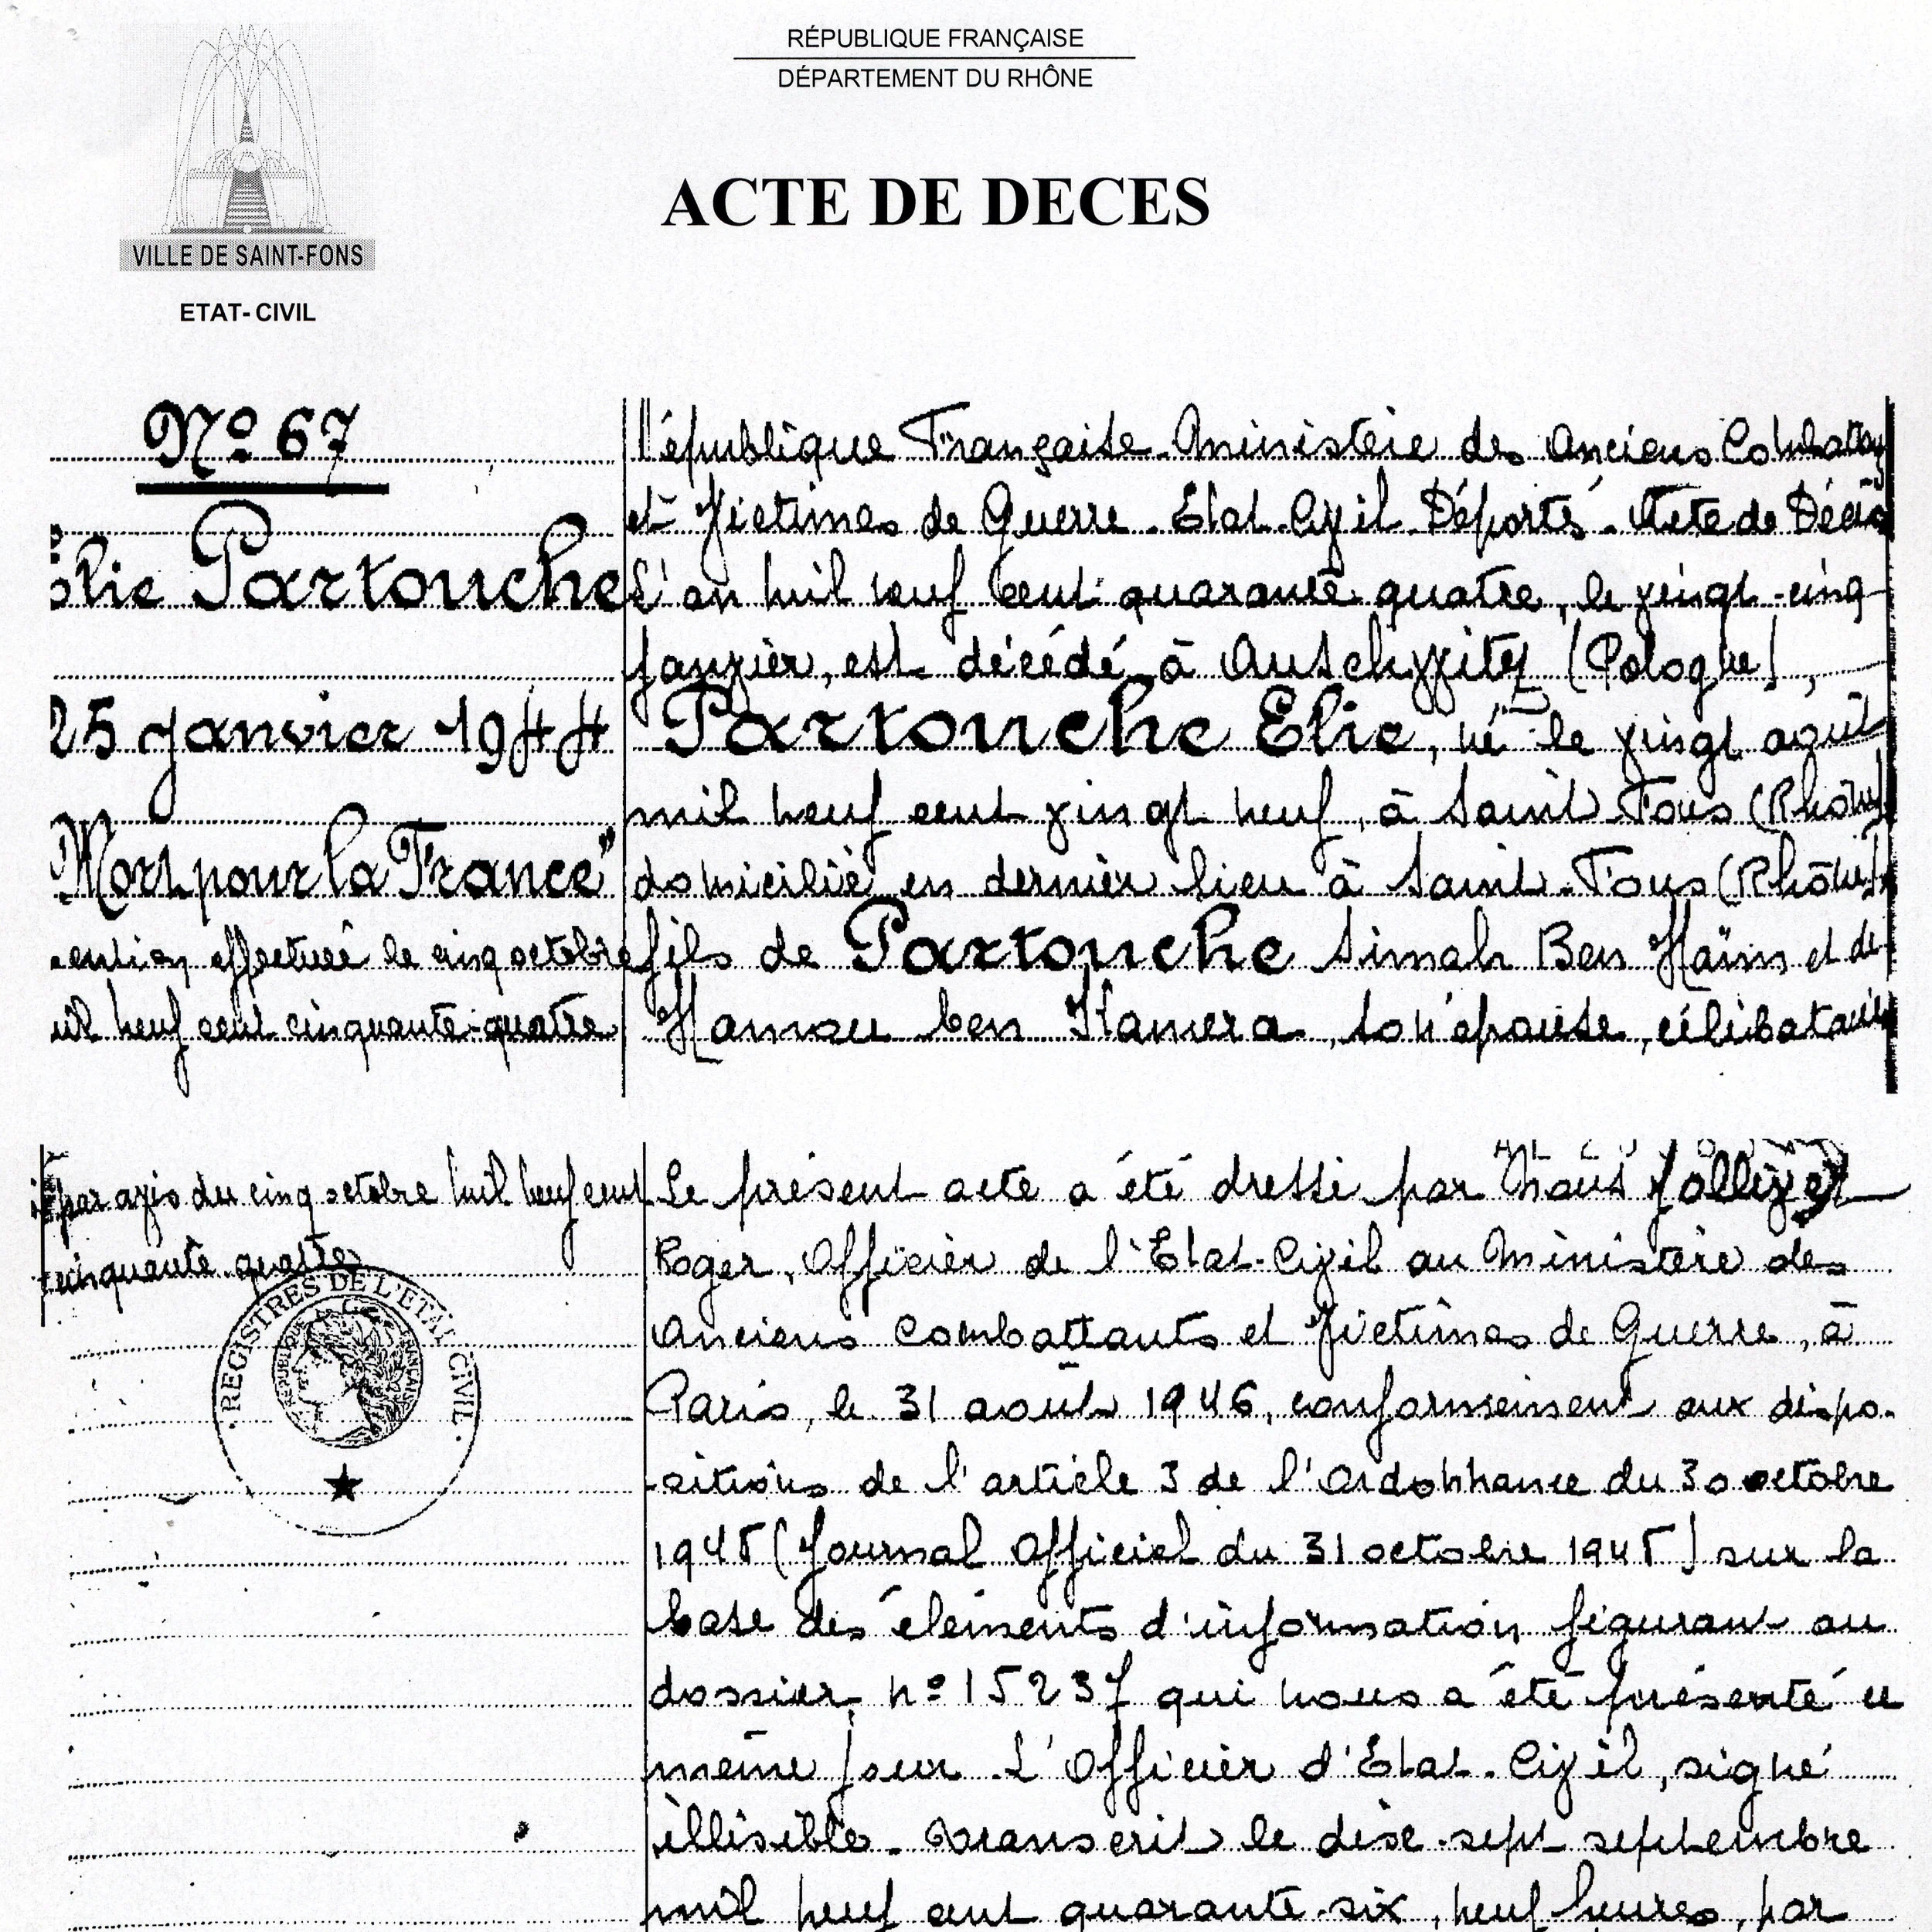 RÉPUBLIQUE FRANÇAISE
DÉPARTEMENT DU RHÔNE
ACTE DE DECES
VILLE DE SAINT-FONS
ETAT-CIVIL
Nº 67
Elie Partouche
25 janvier 1944
Mort pour la France"
mention effectuée le cinq octobre
mil neuf cent cinquante-quatre
par avis du cinq octobre mil neuf cent
cinquante quatre
REGISTRES DE L'ETAT CIVIL
République Française. Ministère des Anciens Combattants
et Victimes de Guerre. Etat-Civil Déporté. Acte de Décès
L'an mil neuf cent quarante quatre, le vingt-cinq
janvier, est décédé à Auschwitz (Pologne),
Partouche Elie, né le vingt août
mil neuf cent vingt neuf, à Saint Fons (Rhône)
domicilié en dernier lieu à Saint-Fons (Rhône)
fils de Partouche Simah Ben Haïm et de
Hamou ben Kamera, son épouse, célibataire
Le présent acte a été dressé par Nous
Roger, Officier de l'Etat-Civil au Ministère des
Anciens Combattants et Victimes de Guerre, à
Paris, le 31 août 1946, conformément aux dispo-
-sitions de l'article 3 de l'ordonnance du 30 octobre
1945 (Journal Officiel du 31 octobre 1945) sur la
base des éléments d'information figurant au
dossier nº 15237 qui nous a été présenté ce
même jour. L'Officier d'Etat-Civil, signé
illisible. Transcrit le dix-sept septembre
mil neuf cent quarante-six, neuf heures, par